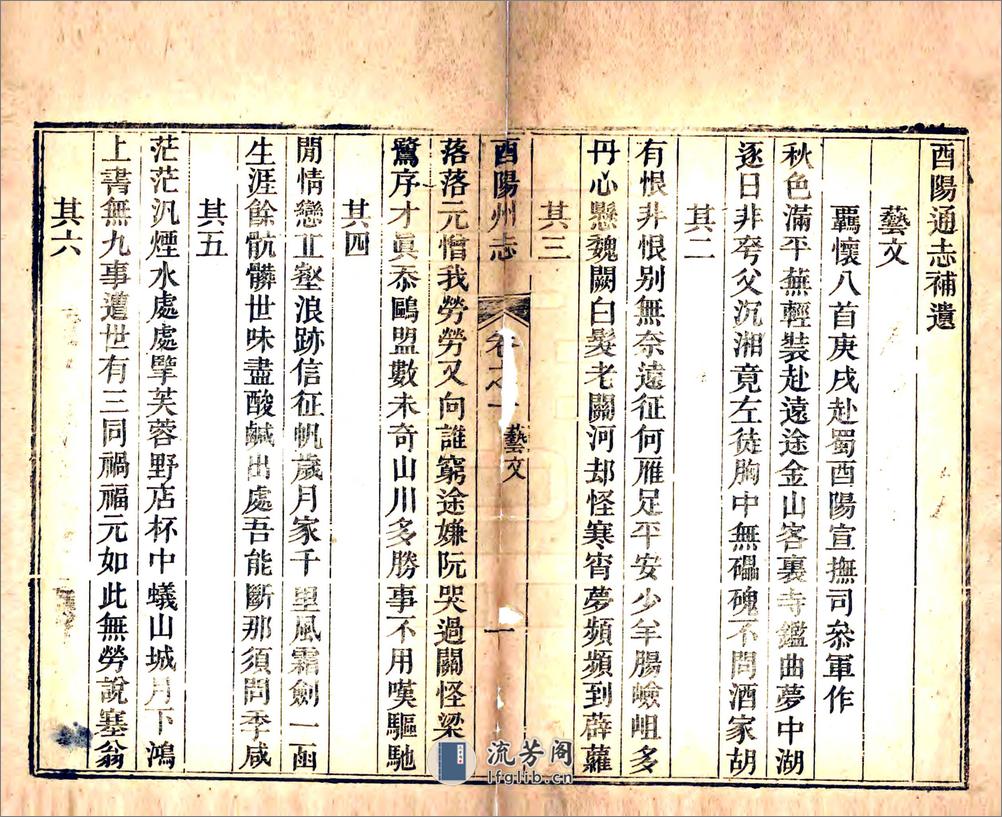 酉陽通志補遺
藝文
羈懷八首庚戌赴蜀酉陽宣撫司叅軍作
秋色滿平蕪輕裝赴遠途金山客裏寺鑑曲夢中湖
逐日非夸父沉湘竟左徒胸中無礧磈不問酒家胡
其二
有恨非恨别無奈遠征何雁足平安少羊腸嶮岨多
丹心懸魏闕白髮老關河却怪寒宵夢頻頻到薜蘿
其三
酉陽州志
卷之一
藝文
一
落落元憎我勞勞又向誰窮途嫌阮哭過關怪梁
鷺序才眞忝鷗盟數未奇山川多勝事不用嘆驅馳
其四
閒情戀丘壑浪跡信征帆歲月家千里風霜劍一函
生涯餘骯髒世味盡酸鹹出處吾能斷那須問季咸
其五
茫茫汎煙水處處擘芙蓉野店杯中蟻山城月下鴻
上書無九事遭世有三同禍福元如此無勞說塞翁
其六
流芳阁
lfglib.cn